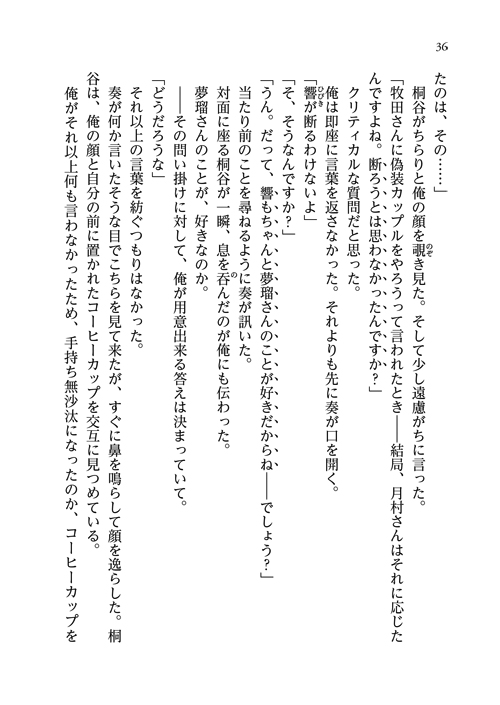 36
たのは、その……」
　桐谷がちらりと俺の顔を覗き見た。そして少し遠慮がちに言った。
「牧田さんに偽装カップルをやろうって言われたとき――結局、月村さんはそれに応じた
んですよね。断ろうとは思わなかったんですか？」
　クリティカルな質問だと思った。
　俺は即座に言葉を返さなかった。それよりも先に奏が口を開く。
「響が断るわけないよ」
「そ、そうなんですか？」
「うん。だって、響もちゃんと夢瑠さんのことが好きだからね――でしょう？」
　当たり前のことを尋ねるように奏が訊いた。
　対面に座る桐谷が一瞬、息を呑んだのが俺にも伝わった。
　夢瑠さんのことが、好きなのか。
　――その問い掛けに対して、俺が用意出来る答えは決まっていて。
「どうだろうな」
　それ以上の言葉を紡ぐつもりはなかった。
　奏が何か言いたそうな目でこちらを見て来たが、すぐに鼻を鳴らして顔を逸らした。桐
谷は、俺の顔と自分の前に置かれたコーヒーカップを交互に見つめている。
　俺がそれ以上何も言わなかったため、手持ち無沙汰になったのか、コーヒーカップを